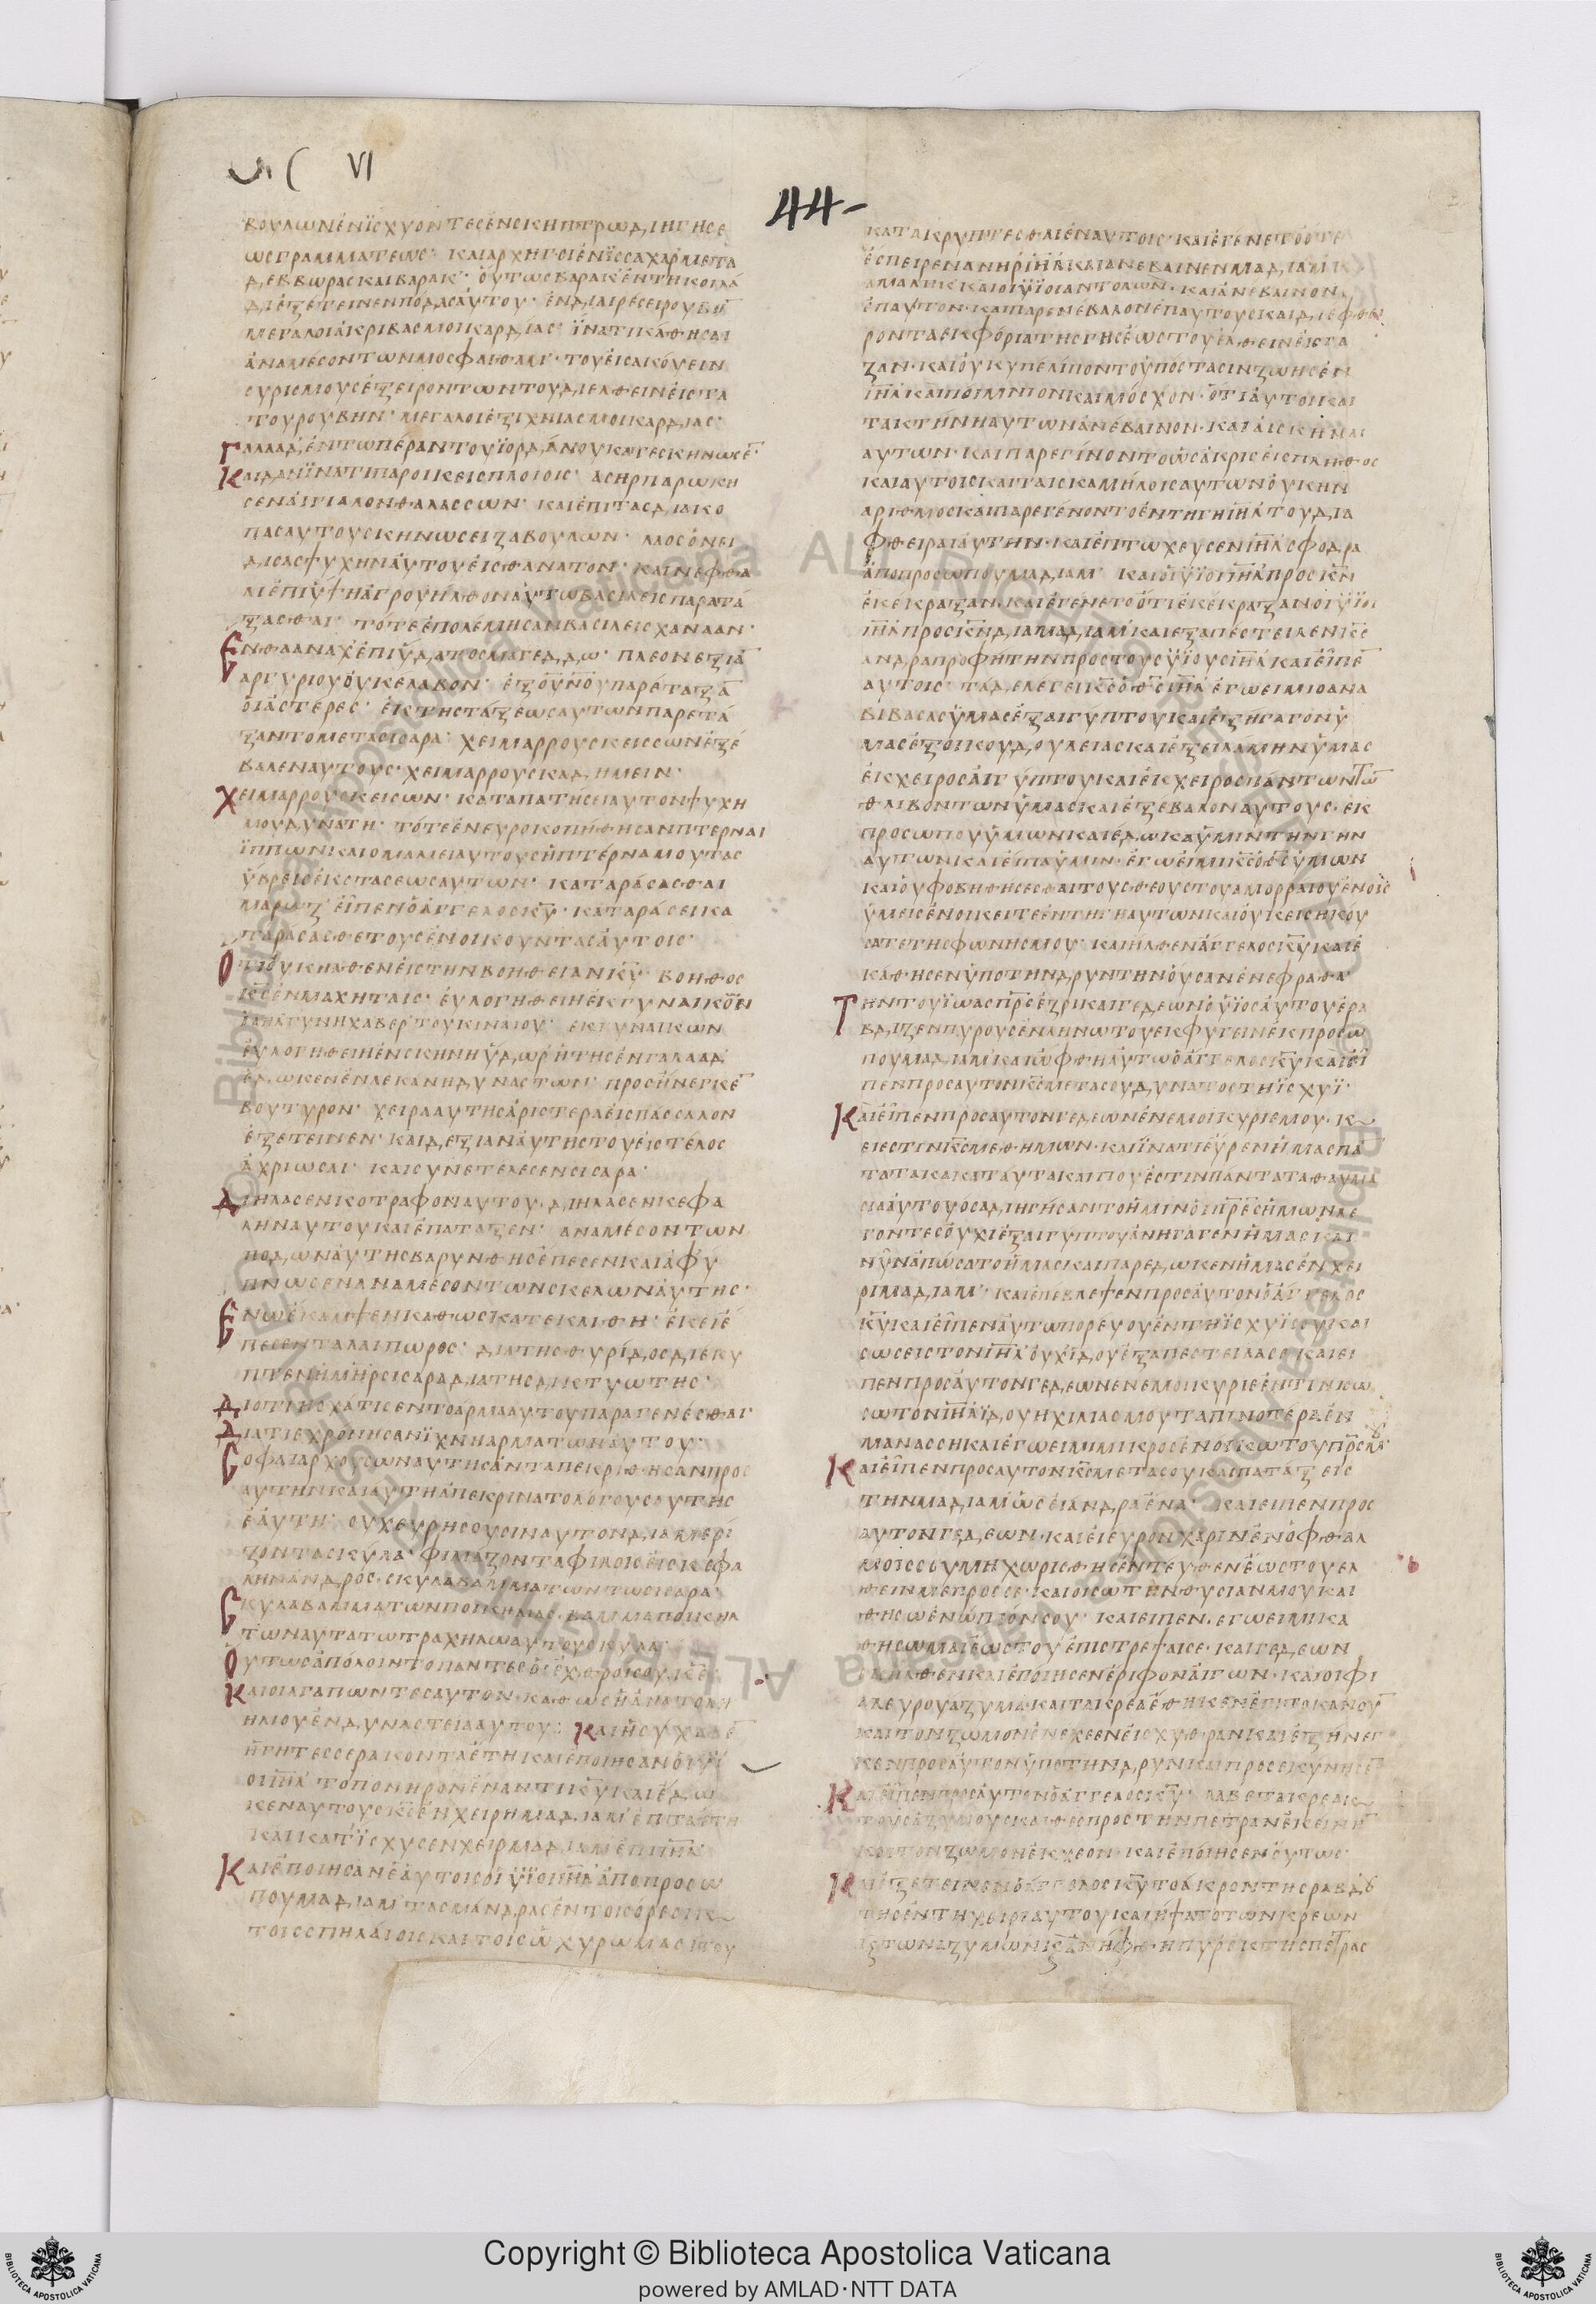 VI
44-
ΒΟΥΛΩΝΕΝΪΣΧΥΟΝΤΕΣΕΝΣΚΗΠΤΡΩΔΙΗΓΗΣΕ
ΩΣΓΡΑΜΜΑΤΕΩΣ· ΚΑΙΑΡΧΗΓΟΙΕΝΪΣΣΑΧΑΡΜΕΤΑ
ΔΕΒΒΩΡΑΣΚΑΙΒΑΡΑΚ· ΟΥΤΩΣΒΑΡΑΚΕΝΤΗΚΟΙΛΑ
ΔΙΕΞΕΤΕΙΝΕΝΠΟΔΑΣΑΥΤΟΥ· ΕΝΔΙΑΙΡΕΣΕΙΡΟΥΒΗ̅
ΜΕΓΑΛΟΙΑΚΡΙΒΑΣΜΟΙΚΑΡΔΙΑΣ· ΪΝΑΤΙΚΑΘΗΣΑΙ
ΑΝΑΜΕΣΟΝΤΩΝΜΟΣΦΑΙΘΑΜ· ΤΟΥΕΙΣΑΚΟΥΕΙΝ
ΣΥΡΙΣΜΟΥΣΕΞΕΙΡΟΝΤΩΝΤΟΥΔΙΕΛΘΕΙΝΕΙΣΤΑ
ΤΟΥΡΟΥΒΗΝ· ΜΕΓΑΛΟΙΕΞΙΧΝΙΑΣΜΟΙΚΑΡΔΙΑΣ·
ΓΑΛΑΑΔΕΝΤΩΠΕΡΑΝΤΟΥΪΟΡΔΑΝΟΥΚΑΤΕΣΚΗΝΩΣΕ̅·
ΚΑΙΔΑΝΪΝΑΤΙΠΑΡΟΙΚΕΙΣΠΛΟΙΟΙΣ· ΑΣΗΡΠΑΡΩΚΗ
ΣΕΝΑΙΓΙΑΛΟΝΘΑΛΑΣΣΩΝ· ΚΑΙΕΠΙΤΑΣΔΙΑΚΟ
ΠΑΣΑΥΤΟΥΣΚΗΝΩΣΕΙΖΑΒΟΥΛΩΝ· ΛΑΟΣΟΝΕΙ
ΔΙΣΑΣΨΥΧΗΝΑΥΤΟΥΕΙΣΘΑΝΑΤΟΝ· ΚΑΙΝΕΦΘΑ
ΛΙΕΠΙΥΨΗΑΓΡΟΥΗΛΘΟΝΑΥΤΩΒΑΣΙΛΕΙΣΠΑΡΑΤΑ
ΞΑΣΘΑΙ· ΤΟΤΕΕΠΟΛΕΜΗΣΑΝΒΑΣΙΛΕΙΣΧΑΝΑΑΝ·
ΕΝΘΑΑΝΑΧΕΠΙΥΔΑΤΟΣΜΑΓΕΔΔΩ· ΠΛΕΟΝΕΞΙΑ̅
ΑΡΓΥΡΙΟΥΟΥΚΕΛΑΒΟΝ· ΕΞΟΥΝΟΥΠΑΡΕΤΑΞΑ̅
ΟΙΑΣΤΕΡΕΣ· ΕΚΤΗΣΤΑΞΕΩΣΑΥΤΩΝΠΑΡΕΤΑ
ΞΑΝΤΟΜΕΤΑΣΙΣΑΡΑ· ΧΕΙΜΑΡΡΟΥΣΚΕΙΣΣΩΝΕΞΕ
ΒΑΛΕΝΑΥΤΟΥΣ· ΧΕΙΜΑΡΡΟΥΣΚΑΔΗΜΕΙΝ·
ΧΕΙΜΑΡΡΟΥΣΚΕΙΣΩΝ· ΚΑΤΑΠΑΤΗΣΕΙΑΥΤΟΝΨΥΧΗ
ΜΟΥΔΥΝΑΤΗ· ΤΟΤΕΕΝΕΥΡΟΚΟΠΗΘΗΣΑΝΠΤΕΡΝΑΙ
ΪΠΠΩΝΚΑΙΟΜΑΜΕΙΑΥΤΟΥΣΗΠΤΕΡΝΑΜΟΥΤΑΣ
ΥΒΡΕΙΣΕΚΣΤΑΣΕΩΣΑΥΤΩΝ· ΚΑΤΑΡΑΣΑΣΘΑΙ
ΜΑΡΩΖΕΙΠΕΝΟΑΓΓΕΛΟΣΚΥ̅· ΚΑΤΑΡΑΣΕΙΚΑ
ΤΑΡΑΣΑΣΘΕΤΟΥΣΕΝΟΙΚΟΥΝΤΑΣΑΥΤΟΙΣ·
ΟΤΙΟΥΚΗΛΘΕΝΕΙΣΤΗΝΒΟΗΘΕΙΑΝΚΥ̅· ΒΟΗΘΟΣ
ΚΣ̅ΕΝΜΑΧΗΤΑΙΣ· ΕΥΛΟΓΗΘΕΙΗΕΚΓΥΝΑΙΚΩΝ
ΙΑΗΛΓΥΝΗΧΑΒΕΡΤΟΥΚΙΝΑΙΟΥ· ΕΚΓΥΝΑΙΚΩΝ
ΕΥΛΟΓΗΘΕΙΗΕΝΣΚΗΝΗΥΔΩΡΗΤΗΣΕΝΓΑΛΑΑΔ
ΕΔΩΚΕΝΕΝΛΕΚΑΝΗΔΥΝΑΣΤΩΝ· ΠΡΟΣΗΝΕΓΚΕ̅
ΒΟΥΤΥΡΟΝ· ΧΕΙΡΑΑΥΤΗΣΑΡΙΣΤΕΡΑΕΙΣΠΑΣΣΑΛΟΝ
ΕΞΕΤΕΙΝΕΝ· ΚΑΙΔΕΞΙΑΝΑΥΤΗΣΤΟΥΕΙΣΤΕΛΟΣ
ΑΧΡΙΩΣΑΙ· ΚΑΙΣΥΝΕΤΕΛΕΣΕΝΣΙΣΑΡΑ·
ΔΙΗΛΑΣΕΝΙΚΟΤΡΑΦΟΝΑΥΤΟΥ· ΔΙΗΛΑΣΕΝΚΕΦΑ
ΛΗΝΑΥΤΟΥΚΑΙΕΠΑΤΑΞΕΝ· ΑΝΑΜΕΣΟΝΤΩΝ
ΠΟΔΩΝΑΥΤΗΣΒΑΡΥΝΘΗΣΕΠΕΣΕΝΚΑΙΑΦΥ
ΠΝΩΣΕΝΑΝΑΜΕΣΟΝΤΩΝΣΚΕΛΩΝΑΥΤΗΣ·
ΕΝΩΕΚΑΜΨΕΝΚΑΘΩΣΚΑΤΕΚΛΙΘΗ· ΕΚΕΙΕ
ΠΕΣΕΝΤΑΛΑΙΠΩΡΟΣ· ΔΙΑΤΗΣΘΥΡΙΔΟΣΔΙΕΚΥ
ΠΤΕΝΗΜΗΡΣΙΣΑΡΑΔΙΑΤΗΣΔΙΚΤΥΩΤΗΣ·
ΔΙΟΤΙΗΣΧΑΤΙΣΕΝΤΟΑΡΜΑΑΥΤΟΥΠΑΡΑΓΕΝΕΣΘΑΙ·
ΔΙΑΤΙΕΧΡΟΝΙΣΑΝΪΧΝΗΑΡΜΑΤΩΝΑΥΤΟΥ·
ΣΟΦΑΙΑΡΧΟΥΣΩΝΑΥΤΗΣΑΝΤΑΠΕΚΡΙΘΗΣΑΝΠΡΟΣ
ΑΥΤΗΝΚΑΙΑΥΤΗΑΠΕΚΡΙΝΑΤΟΛΟΓΟΥΣΑΥΤΗΣ
ΕΑΥΤΗ· ΟΥΧΕΥΡΗΣΟΥΣΙΝΑΥΤΟΝΔΙΑΜΕΡΙ
ΖΟΝΤΑΣΚΥΛΑ· ΦΙΛΙΑΖΟΝΤΑΦΙΛΟΙΣΕΙΣΚΕΦΑ
ΛΗΝΑΝΔΡΟΣ· ΣΚΥΛΑΒΑΜΜΑΤΩΝΤΩΣΙΣΑΡΑ·
ΣΚΥΛΑΒΑΜΜΑΤΩΝΠΟΙΚΙΛΙΑΣ· ΒΑΜΜΑΠΟΙΚΙΛ
ΤΩΝΑΥΤΑΤΩΤΡΑΧΗΛΩΑΥΤΟΥΣΚΥΛΑ·
ΟΥΤΩΣΑΠΟΛΟΙΝΤΟΠΑΝΤΕΣΟΙΕΧΘΡΟΙΣΟΥΚΕ̅·
ΚΑΙΟΙΑΓΑΠΩΝΤΕΣΑΥΤΟΝ· ΚΑΘΩΣΗΑΝΑΤΟΛΗ
ΗΛΙΟΥΕΝΔΥΝΑΣΤΕΙΑΑΥΤΟΥ: ΚΑΙΗΣΥΧΑΣΕ̅
ΗΓΗΤΕΣΣΕΡΑΚΟΝΤΑΕΤΗΚΑΙΕΠΟΙΗΣΑΝΟΙΥΪ
ΟΙΙΗ̅Λ̅ΤΟΠΟΝΗΡΟΝΕΝΑΝΤΙΚΥ̅ΚΑΙΕΔΩ
ΚΕΝΑΥΤΟΥΣΚΣ̅ΕΝΧΕΙΡΗΜΑΔΙΑΜΕΠΤΑΕΤΗ
ΚΑΙΚΑΤΪΣΧΥΣΕΝΧΕΙΡΜΑΔΙΑΜΕΠΙΙΗ̅Λ̅
ΚΑΙΕΠΟΙΗΣΑΝΕΑΥΤΟΙΣΟΙΥΪΟΙΙΗ̅Λ̅ΑΠΟΠΡΟΣΩ
ΠΟΥΜΑΔΙΑΜΤΑΣΜΑΝΔΡΑΣΕΝΤΟΙΣΟΡΕΣΙΚ
ΤΟΙΣΣΠΗΛΑΙΟΙΣΚΑΙΤΟΙΣΟΧΥΡΩΜΑΣΙΤΟΥ
ΚΑΤΑΚΡΥΠΤΕΣΘΑΙΕΝΑΥΤΟΙΣ· ΚΑΙΕΓΕΝΕΤΟΟΤΕ
ΕΣΠΕΙΡΕΝΑΝΗΡΙΗ̅Λ̅ΚΑΙΑΝΕΒΑΙΝΕΝΜΑΔΙΑΜΚ
ΑΜΑΛΗΚΚΑΙΟΙΥΪΟΙΑΝΤΟΛΩΝ· ΚΑΙΑΝΕΒΑΙΝΟΝ
ΕΠΑΥΤΟΝ· ΚΑΙΠΑΡΕΝΕΒΑΛΟΝΕΠΑΥΤΟΥΣΚΑΙΔΙΕΦΘΕΙ
ΡΟΝΤΑΕΚΦΟΡΙΑΤΗΣΓΗΣΕΩΣΤΟΥΕΛΘΕΙΝΕΙΣΓΑ
ΖΑΝ· ΚΑΙΟΥΚΥΠΕΛΙΠΟΝΤΟΥΠΟΣΤΑΣΙΝΖΩΗΣΕΝ
ΙΗ̅Λ̅ΚΑΙΠΟΙΜΝΙΟΝΚΑΙΜΟΣΧΟΝ· ΟΤΙΑΥΤΟΙΚΑΙ
ΤΑΚΤΗΝΗΑΥΤΩΝΑΝΕΒΑΙΝΟΝ· ΚΑΙΑΙΣΚΗΝΑΙ
ΑΥΤΩΝ· ΚΑΙΠΑΡΕΓΙΝΟΝΤΟΩΣΑΚΡΙΣΕΙΣΠΛΗΘΟΣ
ΚΑΙΑΥΤΟΙΣΚΑΙΤΑΙΣΚΑΜΗΛΟΙΣΑΥΤΩΝΟΥΚΗΝ
ΑΡΙΘΜΟΣΚΑΙΠΑΡΕΓΕΝΟΝΤΟΕΝΤΗΓΗΙΗ̅Λ̅ΤΟΥΔΙΑ
ΦΘΕΙΡΑΙΑΥΤΗΝ· ΚΑΙΕΠΤΩΧΕΥΣΕΝΙΗ̅Λ̅ΣΦΟΔΡΑ
ΑΠΟΠΡΟΣΩΠΟΥΜΑΔΙΑΜ· ΚΑΙΟΙΥΪΟΙΙΗ̅Λ̅ΠΡΟΣΚ̅Ν̅
ΕΚΕΚΡΑΞΑΝ· ΚΑΙΕΓΕΝΕΤΟΟΤΙΕΚΕΚΡΑΞΑΝΟΙΥΪΟΙ
ΙΗ̅Λ̅ΠΡΟΣΚ̅Ν̅ΔΙΑΜΑΔΙΑΜΚΑΙΕΞΑΠΕΣΤΕΙΛΕΝΚΣ̅
ΑΝΔΡΑΠΡΟΦΗΤΗΝΠΡΟΣΤΟΥΣΥΪΟΥΣΙΗ̅Λ̅ΚΑΙΕΙΠΕ̅
ΑΥΤΟΙΣ· ΤΑΔΕΛΕΓΕΙΚΣ̅ΟΘΣ̅ΙΗ̅Λ̅ΕΓΩΕΙΜΙΟΑΝΑ
ΒΙΒΑΣΑΣΥΜΑΣΕΞΑΙΓΥΠΤΟΥΚΑΙΕΞΗΓΑΓΟΝΥ
ΜΑΣΕΞΟΙΚΟΥΔΟΥΛΕΙΑΣΚΑΙΕΞΕΙΛΑΜΗΝΥΜΑΣ
ΕΚΧΕΙΡΟΣΑΙΓΥΠΤΟΥΚΑΙΕΚΧΕΙΡΟΣΠΑΝΤΩΝΤΩ̅
ΘΛΙΒΟΝΤΩΝΥΜΑΣΚΑΙΕΞΕΒΑΛΟΝΑΥΤΟΥΣ· ΕΚ
ΠΡΟΣΩΠΟΥΥΜΩΝΚΑΙΕΔΩΚΑΥΜΙΝΤΗΝΓΗΝ
ΑΥΤΩΝΚΑΙΕΙΠΑΥΜΙΝ· ΕΓΩΕΙΜΙΚΣ̅ΟΘΣ̅ΥΜΩΝ
ΚΑΙΟΥΦΟΒΗΘΗΣΕΣΘΑΙΤΟΥΣΘΕΟΥΣΤΟΥΑΜΟΡΡΑΙΟΥΕΝΟΙΣ
ΥΜΕΙΣΕΝΟΙΚΕΙΤΕΕΝΤΗΓΗΑΥΤΩΝΚΑΙΟΥΚΕΙΣΗΚΟΥ
ΣΑΤΕΤΗΣΦΩΝΗΣΜΟΥ· ΚΑΙΗΛΘΕΝΑΓΓΕΛΟΣΚΥ̅ΚΑΙΕ
ΚΑΘΗΣΕΝΥΠΟΤΗΝΔΡΥΝΤΗΝΟΥΣΑΝΕΝΕΦΡΑΘΑ
ΤΗΝΤΟΥΪΩΑΣΠΡΣ̅ΕΖΡΙΚΑΙΓΕΔΕΩΝΟΥΪΟΣΑΥΤΟΥΕΡΑ
ΒΔΙΖΕΝΠΥΡΟΥΣΕΝΛΗΝΩΤΟΥΕΚΦΥΓΕΙΝΕΚΠΡΟΣΩ
ΠΟΥΜΑΔΙΑΜΚΑΙΩΦΘΗΑΥΤΩΟΑΓΓΕΛΟΣΚΥ̅ΚΑΙΕΙ
ΠΕΝΠΡΟΣΑΥΤΟΝΚΣ̅ΜΕΤΑΣΟΥΔΥΝΑΤΟΣΤΗΪΣΧΥΪ·
ΚΑΙΕΙΠΕΝΠΡΟΣΑΥΤΟΝΓΕΔΕΩΝΕΝΕΜΟΙΚΥΡΙΕΜΟΥ· Κ
ΕΙΕΣΤΙΝΚΣ̅ΜΕΘΗΜΩΝ· ΚΑΙΪΝΑΤΙΕΥΡΕΝΗΜΑΣΠΑ
ΤΑΤΑΚΑΚΑΤΑΥΤΑΚΑΙΠΟΥΕΣΤΙΝΠΑΝΤΑΤΑΘΑΥΜΑ
ΣΙΑΑΥΤΟΥΟΣΑΔΙΗΓΗΣΑΝΤΟΗΜΙΝΟΙΠΡΕ̅Σ̅ΗΜΩΝΛΕ
ΓΟΝΤΕΣΟΥΧΙΕΞΑΙΓΥΠΤΟΥΑΝΗΓΑΓΕΝΗΜΑΣΚΑΙ
ΝΥΝΑΠΩΣΑΤΟΗΜΑΣΚΑΙΠΑΡΕΔΩΚΕΝΗΜΑΣΕΝΧΕΙ
ΡΙΜΑΔΙΑΜ· ΚΑΙΕΠΕΒΛΕΨΕΝΠΡΟΣΑΥΤΟΝΟΑΓΓΕΛΟΣ
ΚΥ̅ΚΑΙΕΙΠΕΝΑΥΤΩΠΟΡΕΥΟΥΕΝΤΗΪΣΧΥΪΣΟΥΚΑΙ
ΣΩΣΕΙΣΤΟΝΙΗ̅Λ̅ΟΥΧΙΔΟΥΕΞΑΠΕΣΤΕΙΛΑΣΕΚΑΙΕΙ
ΠΕΝΠΡΟΣΑΥΤΟΝΓΕΔΕΩΝΕΝΕΜΟΙΚΥΡΙΕΕΝΤΙΝΙΣΩ
ΣΩΤΟΝΙΗ̅Λ̅ΪΔΟΥΗΧΙΛΙΑΣΜΟΥΤΑΠΙΝΟΤΕΡΑΕΝ
ΜΑΝΑΣΣΗΚΑΙΕΓΩΕΙΜΙΜΙΚΡΟΣΕΝΟΙΚΩΤΟΥΠΡΣ̅ΜΟΥ
ΚΑΙΕΙΠΕΝΠΡΟΣΑΥΤΟΝΚΣ̅ΜΕΤΑΣΟΥΚΑΙΠΑΤΑΞΕΙΣ
ΤΗΝΜΑΔΙΑΜΩΣΕΙΑΝΔΡΑΕΝΑ· ΚΑΙΕΙΠΕΝΠΡΟΣ
ΑΥΤΟΝΓΕΔΕΩΝ· ΚΑΙΕΙΕΥΡΟΝΧΑΡΙΝΕΝΟΦΘΑΛ
ΜΟΙΣΣΟΥΜΗΧΩΡΙΣΘΗΣΕΝΤΕΥΘΕΝΕΩΣΤΟΥΕΛ
ΘΕΙΝΜΕΠΡΟΣΣΕ· ΚΑΙΟΙΣΩΤΗΝΘΥΣΙΑΝΜΟΥΚΑΙ
ΘΗΣΩΕΝΩΠΙΟΝΣΟΥ· ΚΑΙΕΙΠΕΝ· ΕΓΩΕΙΜΙΚΑ
ΘΗΣΩΜΑΙΕΩΣΤΟΥΕΠΙΣΤΡΕΨΑΙΣΕ· ΚΑΙΓΕΔΕΩΝ
ΕΙΣΗΛΘΕΝΚΑΙΕΠΟΙΗΣΕΝΕΡΙΦΟΝΑΙΓΩΝ· ΚΑΙΟΙΦΙ
ΑΛΕΥΡΟΥΑΖΥΜΑΚΑΙΤΑΚΡΕΑΕΘΗΚΕΝΕΠΙΤΟΚΑΝΟΥ̅
ΚΑΙΤΟΝΖΩΜΟΝΕΝΕΧΕΕΝΕΙΣΧΥΘΡΑΝΚΑΙΕΞΗΝΕΓ
ΚΕΝΠΡΟΣΑΥΤΟΝΥΠΟΤΗΝΔΡΥΝΚΑΙΠΡΟΣΕΚΥΝΗΣΕ̅
ΚΑΙΕΙΠΕΝΠΡΟΣΑΥΤΟΝΟΑΓΓΕΛΟΣΚΥ̅· ΛΑΒΕΤΑΚΡΕΑΚ
ΤΟΥΣΑΖΥΜΟΥΣΚΑΙΘΕΣΠΡΟΣΤΗΝΠΕΤΡΑΝΕΚΕΙΝΗ̅
ΚΑΙΤΟΝΖΩΜΟΝΕΚΧΕΟΝ· ΚΑΙΕΠΟΙΗΣΕΝΟΥΤΩΣ·
ΚΑΙΕΞΕΤΕΙΝΕΝΟΑΓΓΕΛΟΣΚΥ̅ΤΟΑΚΡΟΝΤΗΣΡΑΒΔΟΥ
ΤΗΣΕΝΤΗΧΕΙΡΙΑΥΤΟΥΚΑΙΗΨΑΤΟΤΩΝΚΡΕΩΝ
ΚΤΩΝΑΖΥΜΩΝΚΑΝΗΦΘΗΠΥΡΕΚΤΗΣΠΕΤΡΑΣ
Copyright © Biblioteca Apostolica Vaticana
powered by AMLAD·NTT DATA